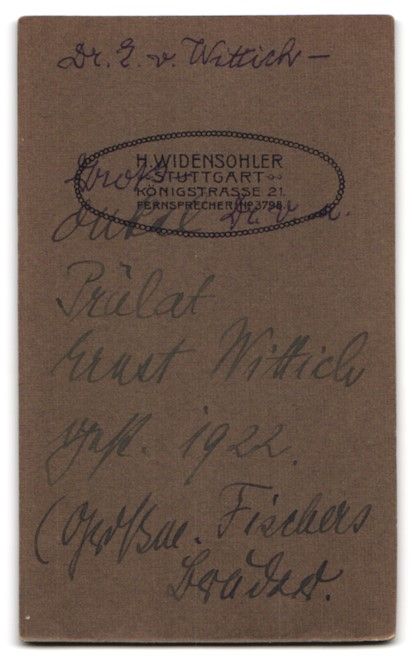 Dr. E. v. Wittich –
H. WIDENSOHLER
STUTTGART
KÖNIGSTRASSE 21.
FERNSPRECHER: No 3798.
Groß-
onkel Dr. v.
Prälat
Ernst Wittich
gest. 1922.
(Großm. Fischers
Bruder.